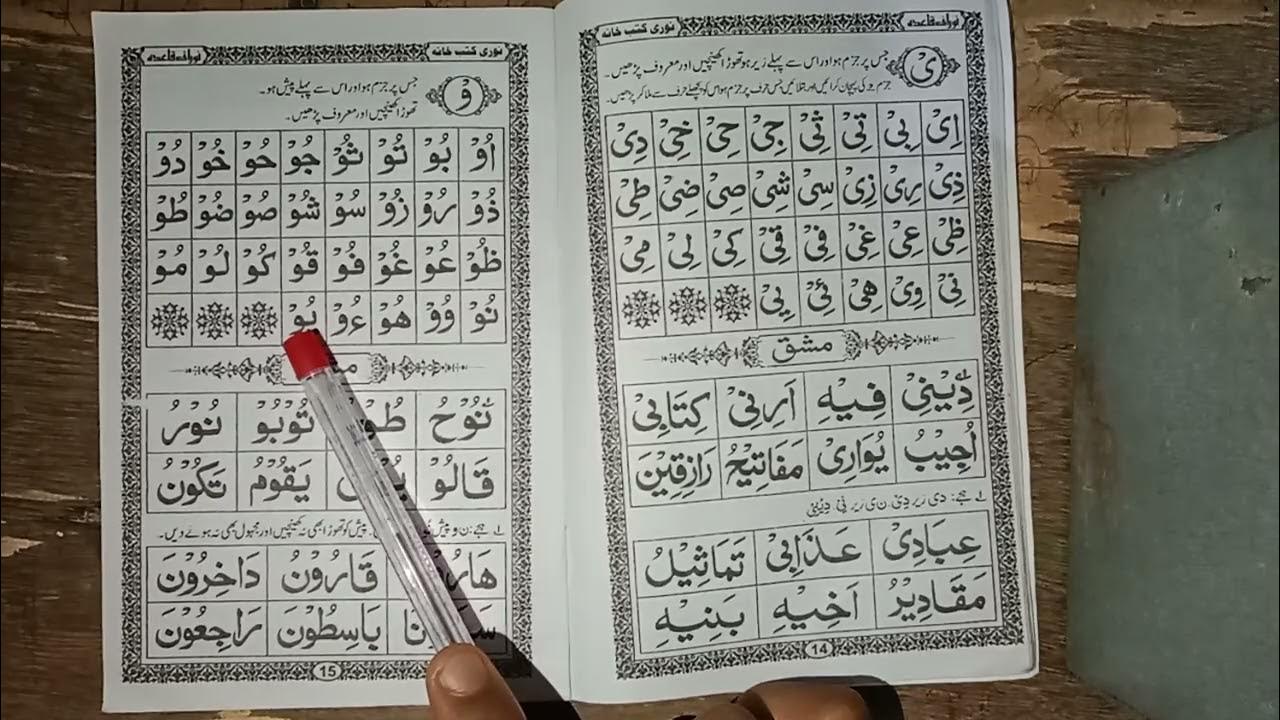 نورانی قاعدہ نوری کتب خانہ
یْ
جس پر جزم ہو اور اس سے پہلے زیر ہو تھوڑا کھینچیں اور معروف پڑھیں۔
جزم کی پہچان کرائیں اور بتلائیں جس حرف پر جزم ہو اس کو پچھلے حرف سے ملا کر پڑھیں۔
اِیْ بِیْ تِیْ ثِیْ جِیْ حِیْ خِیْ دِیْ
ذِیْ رِیْ زِیْ سِیْ شِیْ صِیْ ضِیْ طِیْ
ظِیْ عِیْ غِیْ فِیْ قِیْ کِیْ لِیْ مِیْ
نِیْ وِیْ هِیْ ئِیْ یِیْ
مشق
دِیْنِیْ فِیْهِ اَرِنِیْ کِتَابِیْ
اُجِیْبُ یُوَارِیْ مَفَاتِیْحُ رَازِقِیْنَ
لے ہجے: دی زیر دِیْ، ن ی زیر نِیْ، دِیْنِیْ
عِبَادِیْ عَذَابِیْ تَمَاثِیْلُ
مَقَادِیْرُ اَخِیْهِ بَنِیْهِ
14
نوری کتب خانہ نورانی قاعدہ
وْ
جس پر جزم ہو اور اس سے پہلے پیش ہو۔
تھوڑا کھینچیں اور معروف پڑھیں۔
اُوْ بُوْ تُوْ ثُوْ جُوْ حُوْ خُوْ دُوْ
ذُوْ رُوْ زُوْ سُوْ شُوْ صُوْ ضُوْ طُوْ
ظُوْ عُوْ غُوْ فُوْ قُوْ کُوْ لُوْ مُوْ
نُوْ وُوْ هُوْ ءُوْ یُوْ
نُوْحُ تُوْبُوْ نُوْرُ
قَالُوْ یَقُوْمُ تَکُوْنُ
لے ہجے: ن و پیش پیش کو تھوڑا بھی نہ کھینچیں اور مجہول بھی نہ ہونے دیں۔
قَارُوْنُ دَاخِرُوْنَ
بَاسِطُوْنَ رَاجِعُوْنَ
15